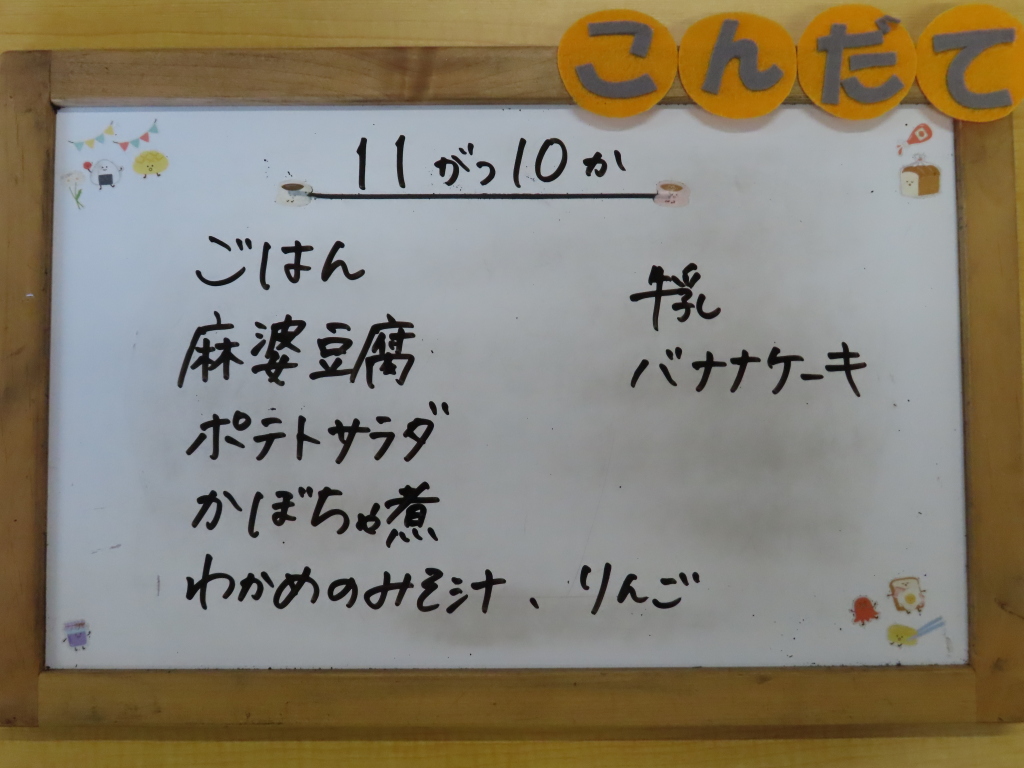 こんだて
11がつ10か
ごはん
麻婆豆腐
ポテトサラダ
かぼちゃ煮
わかめのみそ汁、りんご
牛乳
バナナケーキ